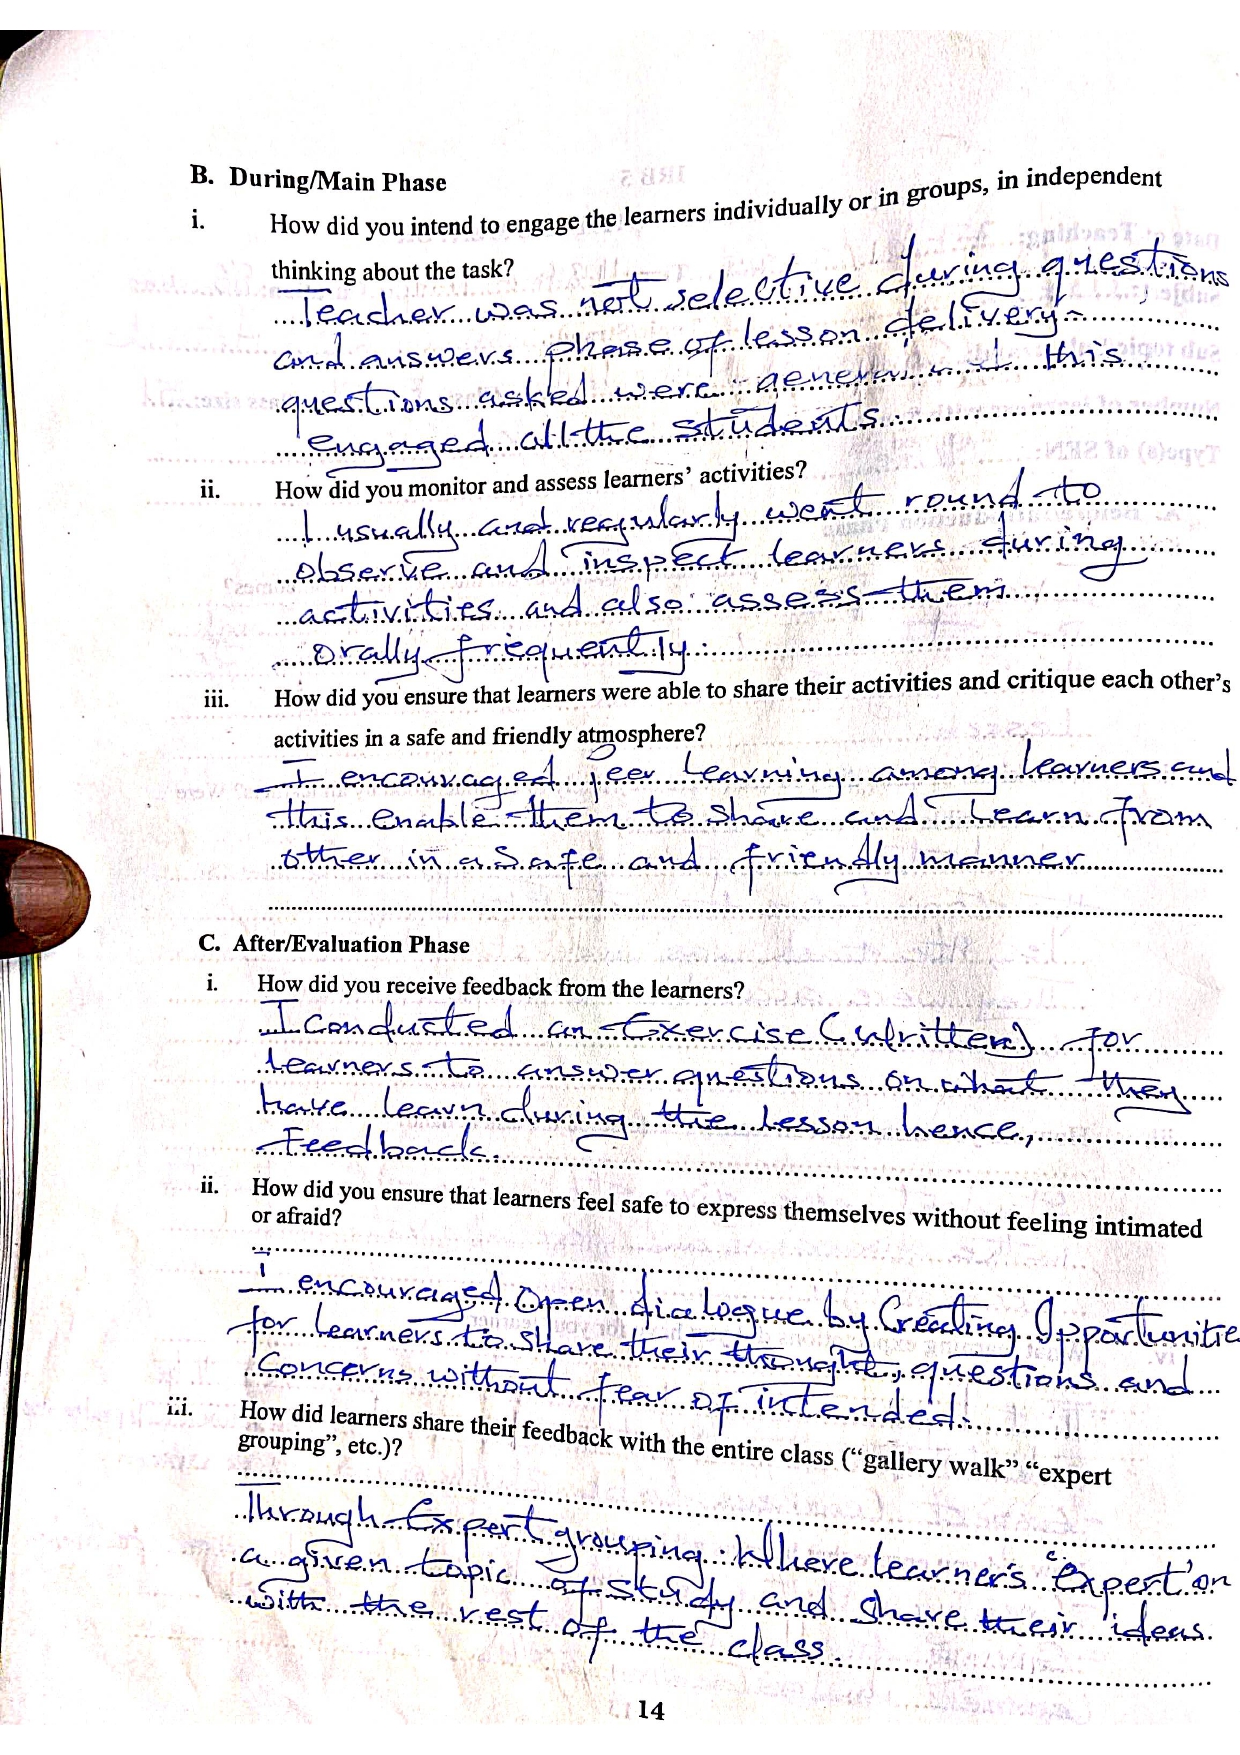 B. During/Main Phase
i. How did you intend to engage the learners individually or in groups, in independent
thinking about the task?
Teacher was not selective during questions
and answers phase of lesson delivery-
questions asked were general this
engaged all the students.
ii. How did you monitor and assess learners' activities?
I usually and regularly went round to
observe and inspect learners during
activities and also assess them
orally frequently.
iii. How did you ensure that learners were able to share their activities and critique each other's
activities in a safe and friendly atmosphere?
I encouraged peer learning among learners and
this enable them to share and learn from
other in a safe and friendly manner
C. After/Evaluation Phase
i. How did you receive feedback from the learners?
I conducted an Exercise (written) for
learners to answer questions on what they
have learn during the lesson hence,
Feedback.
ii. How did you ensure that learners feel safe to express themselves without feeling intimated
or afraid?
I encouraged open dialogue by Creating Opportunitie
for learners to share their thought, questions and
Concerns without fear of intended.
iii. How did learners share their feedback with the entire class ("gallery walk" "expert
grouping", etc.)?
Through Expert grouping. Where learners "Expert' on
a given topic of study and share their ideas
with the rest of the class.
14